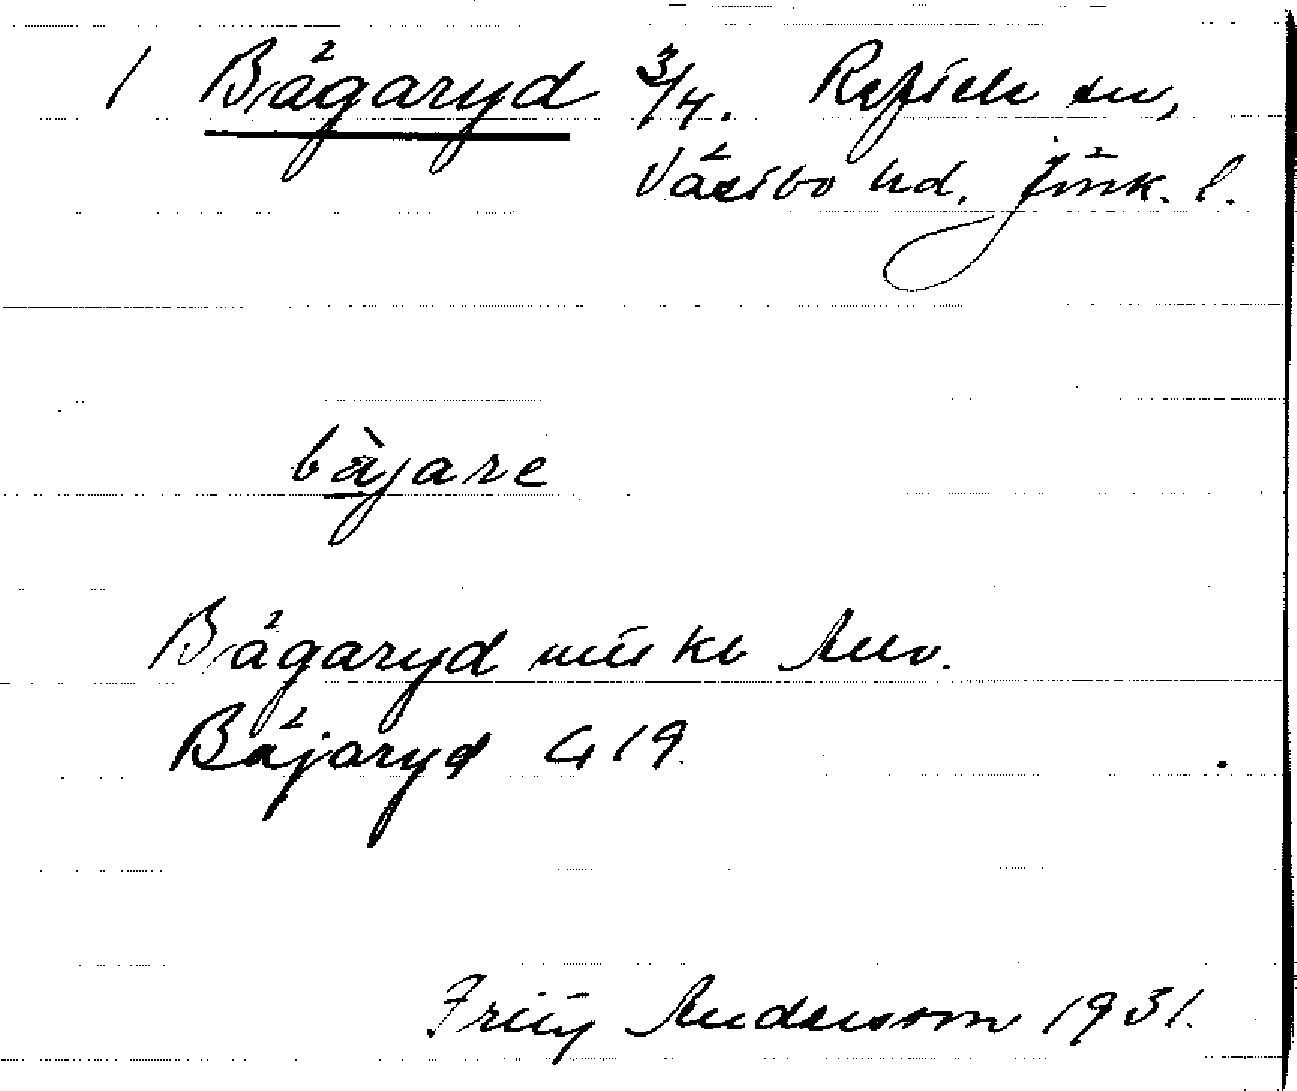 1 Bägaryd 3/4. Reftele sn,
Västbo hd, Jönk. l.
bäjare
Bägaryd
Bäjaryd G 19
Fritz Andersson 1931.